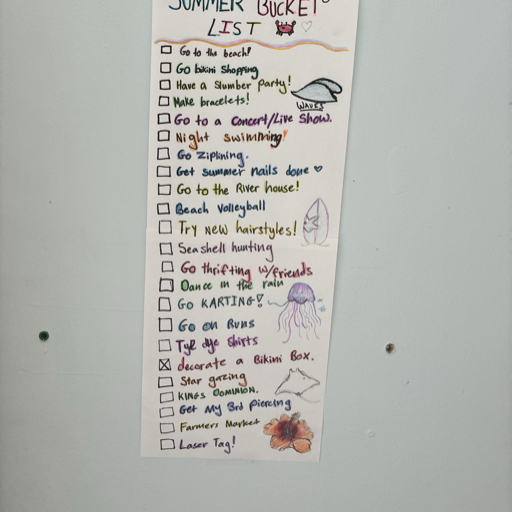 SUMMER BUCKET
LIST
Go to the beach!
Go bikini Shopping
Have a Slumber party!
Make bracelets!
WAVES
Go to a Concert/Live Show.
Night swimming
Go Ziplining.
Get summer nails done
Go to the River house!
Beach Volleyball
Try new hairstyles!
Seashell hunting
Go thrifting w/friends
Dance in the rain
Go KARTING!
Go on Runs
Tye dye Shirts
decorate a Bikini Box.
Star gazing
KINGS DOMINION.
Get My 3rd Piercing
Farmers Market
Laser Tag!